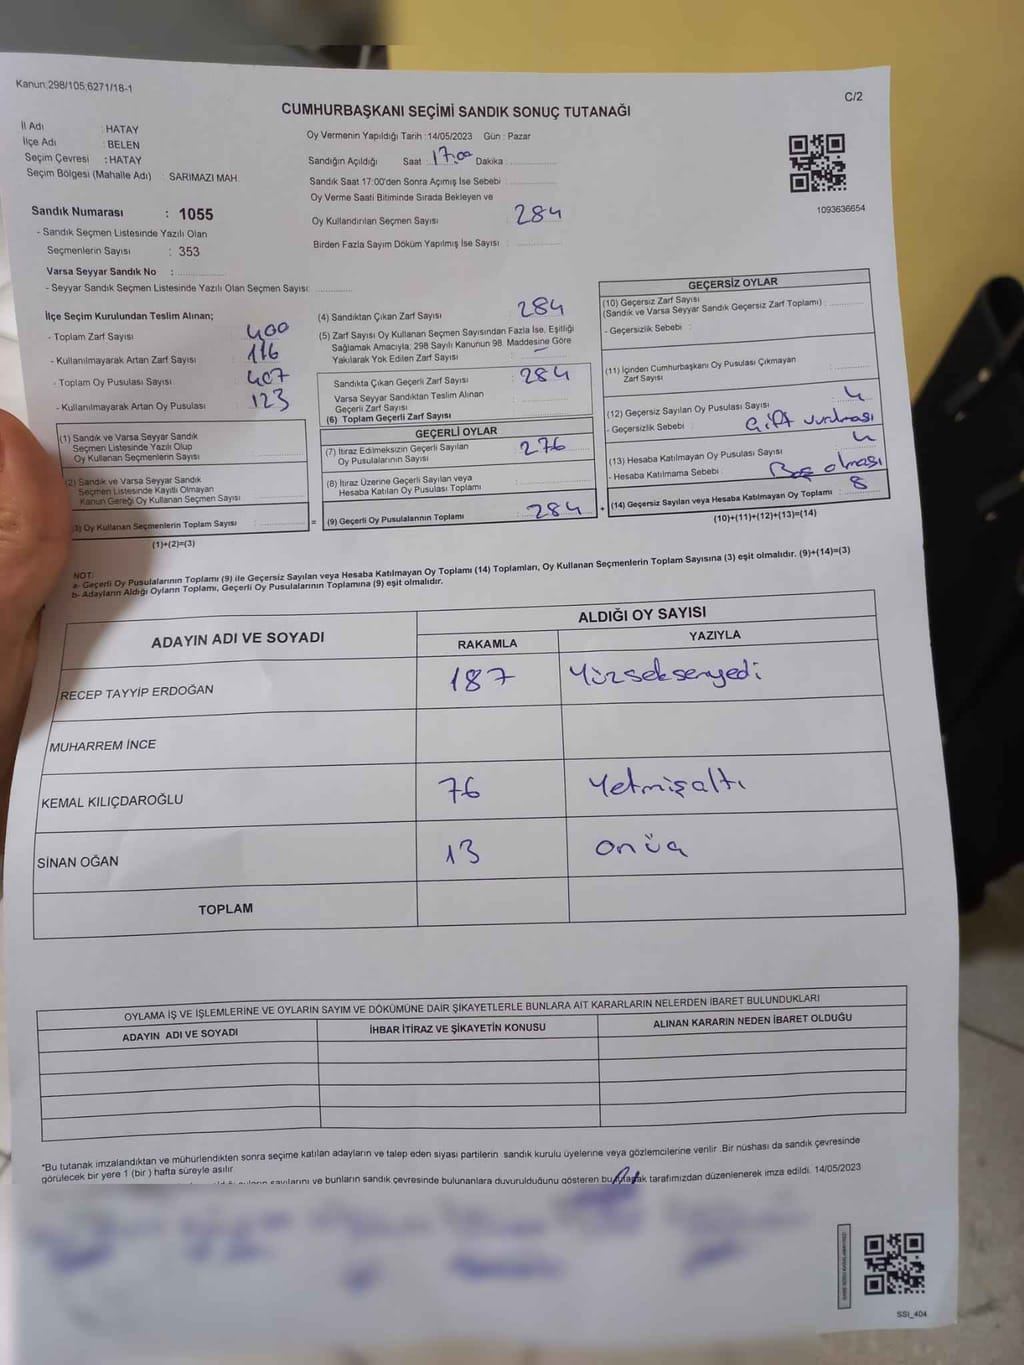 Kanun:298/105,6271/18-1
C/2
CUMHURBAŞKANI SEÇİMİ SANDIK SONUÇ TUTANAĞI
İl Adı : HATAY
İlçe Adı : BELEN
Seçim Çevresi : HATAY
Seçim Bölgesi (Mahalle Adı) : SARIMAZI MAH.
Oy Vermenin Yapıldığı Tarih : 14/05/2023 Gün : Pazar
Sandığın Açıldığı Saat : 17:00 Dakika :
Sandık Saat 17:00'den Sonra Açımış İse Sebebi :
Oy Verme Saati Bitiminde Sırada Bekleyen ve
Oy Kullandırılan Seçmen Sayısı : 284
Birden Fazla Sayım Döküm Yapılmış İse Sayısı :
1093636654
Sandık Numarası : 1055
- Sandık Seçmen Listesinde Yazılı Olan
Seçmenlerin Sayısı : 353
Varsa Seyyar Sandık No :
- Seyyar Sandık Seçmen Listesinde Yazılı Olan Seçmen Sayısı:
İlçe Seçim Kurulundan Teslim Alınan;
- Toplam Zarf Sayısı : 400
- Kullanılmayarak Artan Zarf Sayısı : 116
- Toplam Oy Pusulası Sayısı : 407
- Kullanılmayarak Artan Oy Pusulası : 123
(1) Sandık ve Varsa Seyyar Sandık
Seçmen Listesinde Yazılı Olup
Oy Kullanan Seçmenlerin Sayısı :
(2) Sandık ve Varsa Seyyar Sandık
Seçmen Listesinde Kayıtlı Olmayan
Kanun Gereği Oy Kullanan Seçmen Sayısı :
(3) Oy Kullanan Seçmenlerin Toplam Sayısı :
(1)+(2)=(3)
(4) Sandıktan Çıkan Zarf Sayısı : 284
(5) Zarf Sayısı Oy Kullanan Seçmen Sayısından Fazla İse, Eşitliği
Sağlamak Amacıyla, 298 Sayılı Kanunun 98. Maddesine Göre
Yakılarak Yok Edilen Zarf Sayısı : –
Sandıkta Çıkan Geçerli Zarf Sayısı : 284
Varsa Seyyar Sandıktan Teslim Alınan
Geçerli Zarf Sayısı :
(6) Toplam Geçerli Zarf Sayısı :
GEÇERLİ OYLAR
(7) İtiraz Edilmeksizin Geçerli Sayılan
Oy Pusulalarının Sayısı : 276
(8) İtiraz Üzerine Geçerli Sayılan veya
Hesaba Katılan Oy Pusulası Toplamı :
= (9) Geçerli Oy Pusulalarının Toplamı : 284 +
GEÇERSİZ OYLAR
(10) Geçersiz Zarf Sayısı
(Sandık ve Varsa Seyyar Sandık Geçersiz Zarf Toplamı) :
- Geçersizlik Sebebi :
(11) İçinden Cumhurbaşkanı Oy Pusulası Çıkmayan
Zarf Sayısı :
(12) Geçersiz Sayılan Oy Pusulası Sayısı : 4
- Geçersizlik Sebebi : Çift vurulması
(13) Hesaba Katılmayan Oy Pusulası Sayısı : 4
- Hesaba Katılmama Sebebi : Boş olması
(14) Geçersiz Sayılan veya Hesaba Katılmayan Oy Toplamı : 8
(10)+(11)+(12)+(13)=(14)
NOT:
a- Geçerli Oy Pusulalarının Toplamı (9) ile Geçersiz Sayılan veya Hesaba Katılmayan Oy Toplamı (14) Toplamları, Oy Kullanan Seçmenlerin Toplam Sayısına (3) eşit olmalıdır. (9)+(14)=(3)
b- Adayların Aldığı Oyların Toplamı, Geçerli Oy Pusulalarının Toplamına (9) eşit olmalıdır.
ADAYIN ADI VE SOYADI
ALDIĞI OY SAYISI
RAKAMLA YAZIYLA
RECEP TAYYİP ERDOĞAN 187 Yüzseksenyedi
MUHARREM İNCE
KEMAL KILIÇDAROĞLU 76 Yetmişaltı
SİNAN OĞAN 13 onüç
TOPLAM
OYLAMA İŞ VE İŞLEMLERİNE VE OYLARIN SAYIM VE DÖKÜMÜNE DAİR ŞİKAYETLERLE BUNLARA AİT KARARLARIN NELERDEN İBARET BULUNDUKLARI
ADAYIN ADI VE SOYADI İHBAR İTİRAZ VE ŞİKAYETİN KONUSU ALINAN KARARIN NEDEN İBARET OLDUĞU
*Bu tutanak imzalandıktan ve mühürlendikten sonra seçime katılan adayların ve talep eden siyasi partilerin sandık kurulu üyelerine veya gözlemcilerine verilir. Bir nüshası da sandık çevresinde
görülecek bir yere 1 (bir) hafta süreyle asılır.
sayılarını ve bunların sandık çevresinde bulunanlara duyurulduğunu gösteren bu tutanak tarafımızdan düzenlenerek imza edildi. 14/05/2023
SSI_404